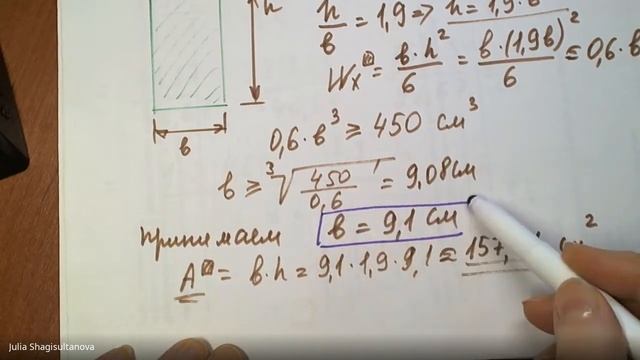 h
h/в = 1,9 => h = 1,9·в
Wx = в·h²/6 = в·(1,9в)²/6 = 0,6·в
в
0,6·в³ ≥ 450 см³
в ≥ ³√(450/0,6) = 9,08см
Принимаем в = 9,1 см
A = в·h = 9,1·1,9·9,1 = 157, ²
Julia Shagisultanova